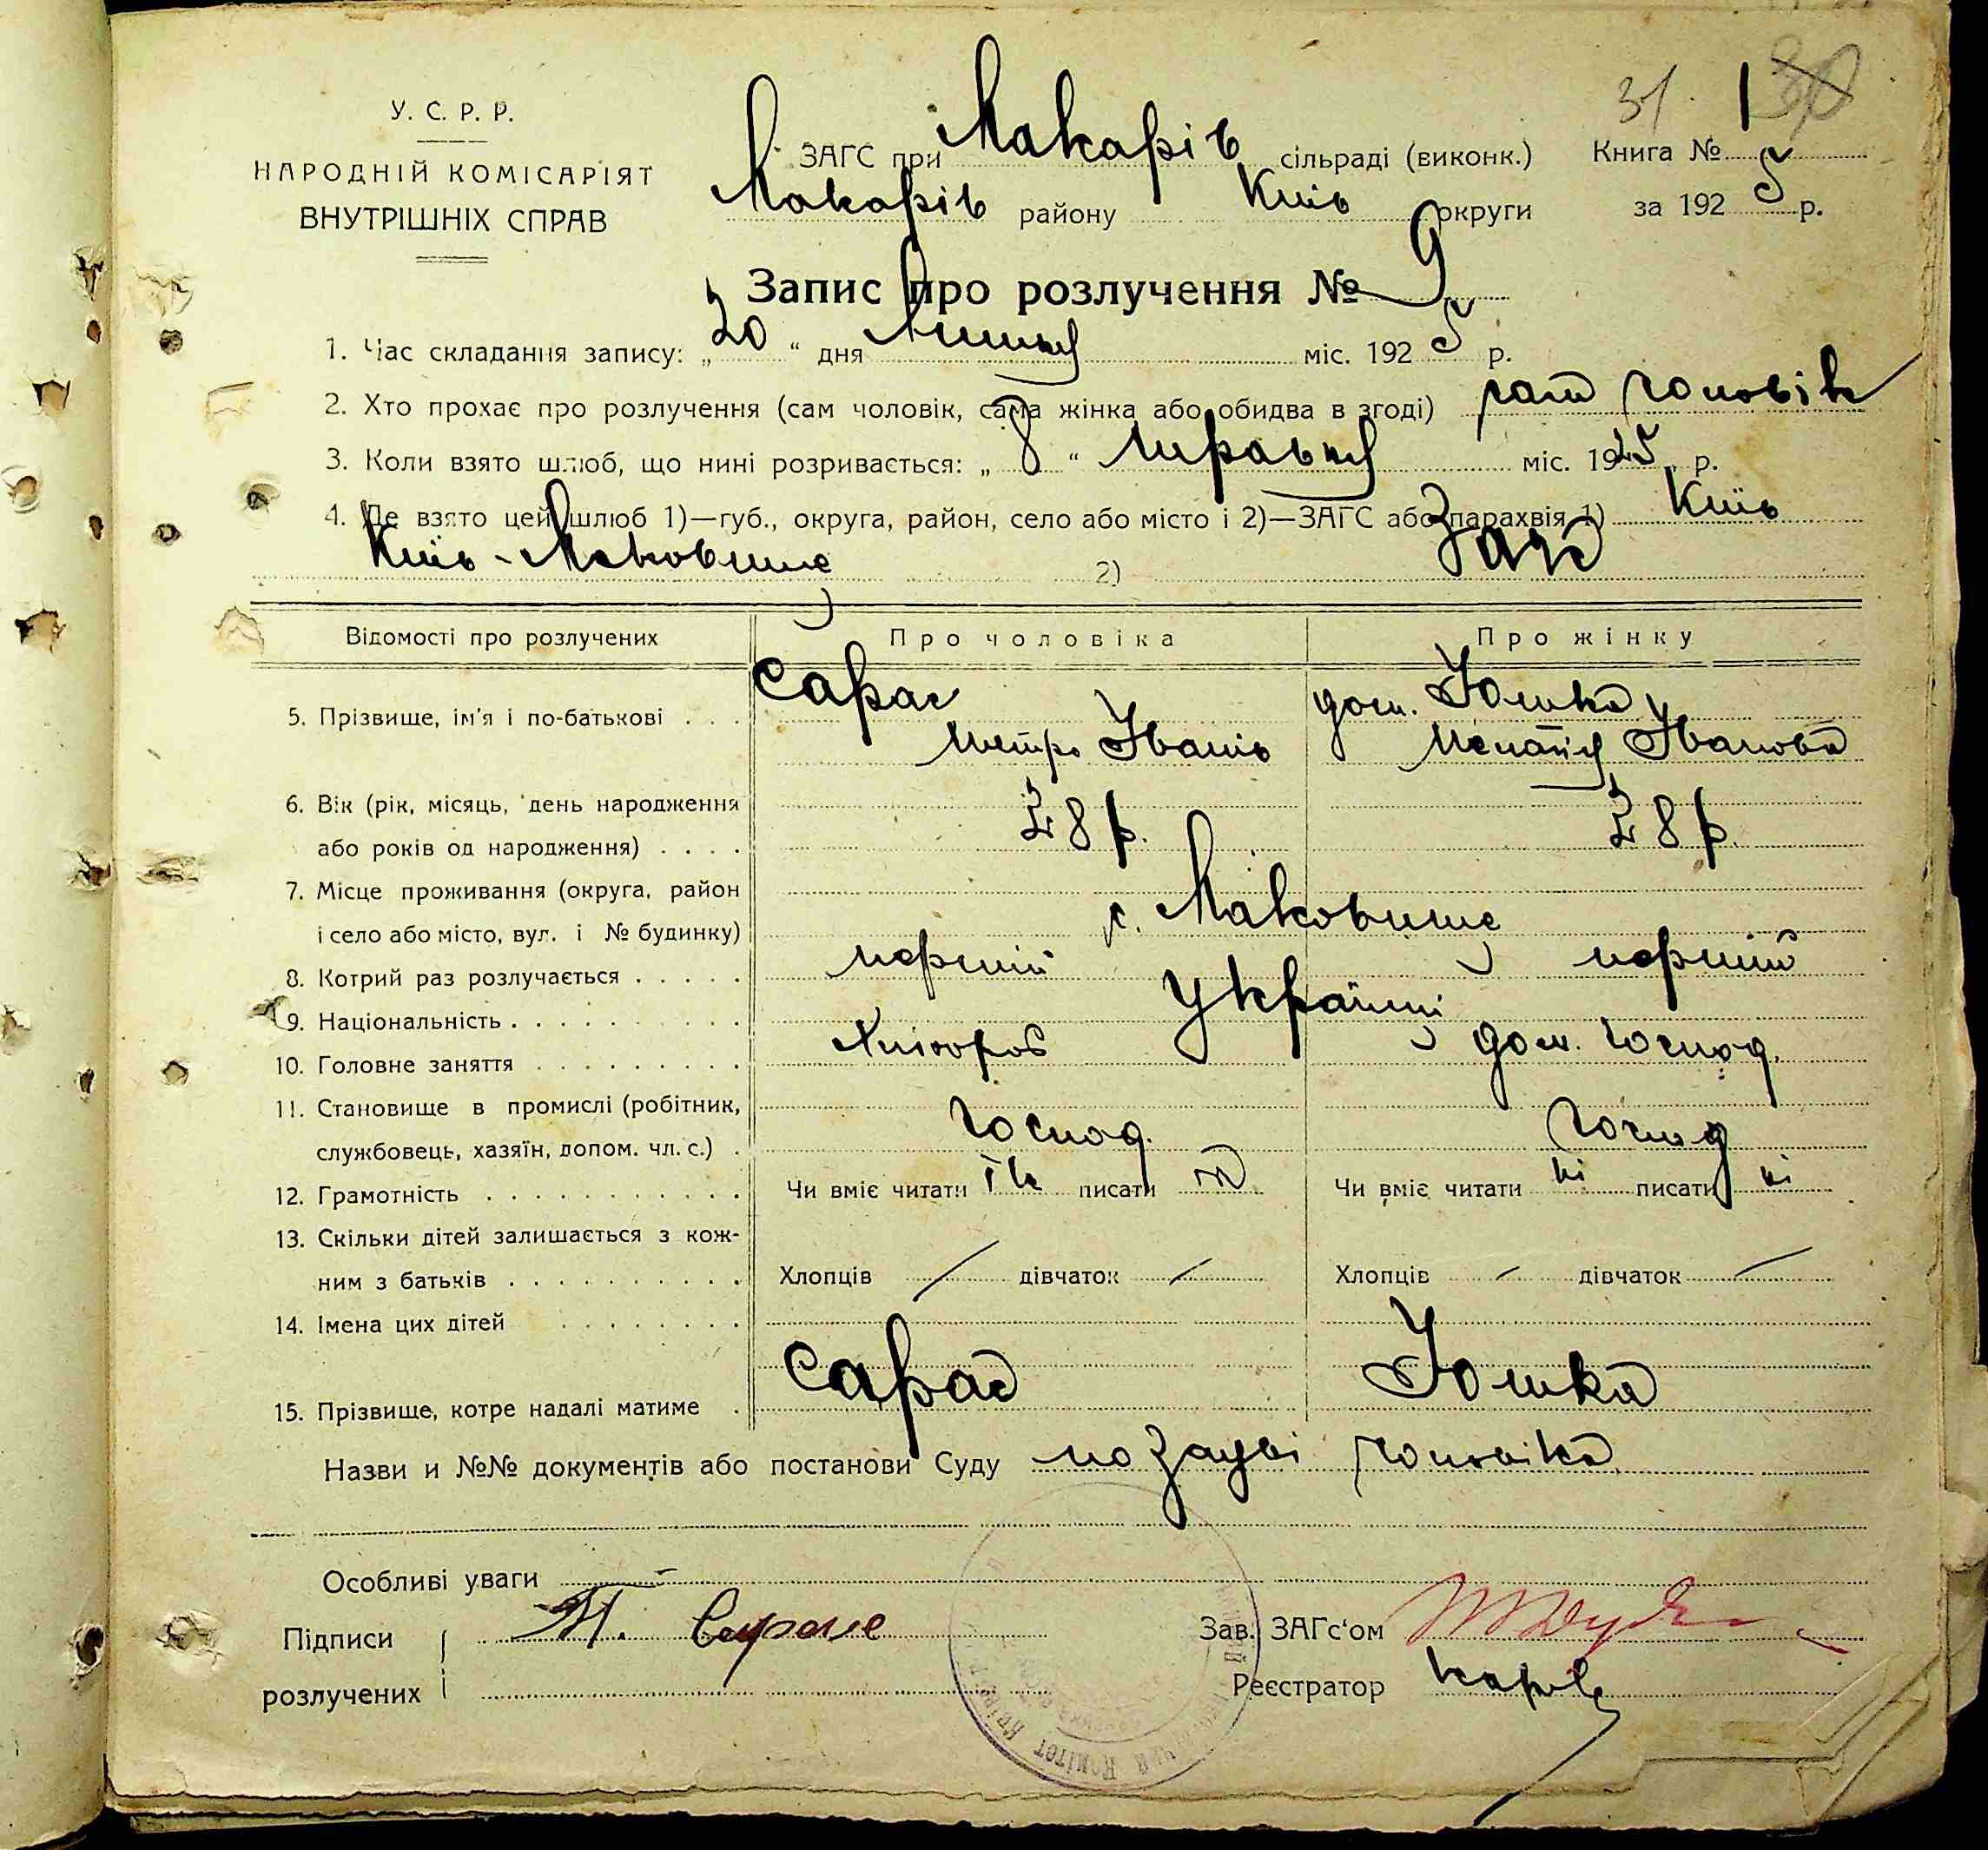 31. 30
У. С. Р. Р.
НАРОДНІЙ КОМІСАРІЯТ
ВНУТРІШНІХ СПРАВ
ЗАГС при Макарів сільраді (виконк.) Книга № 1
Макарів району Київ округи за 1925 р.
Запис про розлучення № 9
1. Час складання запису: „20“ дня Липня міс. 1925 р.
2. Хто прохає про розлучення (сам чоловік, сама жінка або обидва в згоді) сам чоловік
3. Коли взято шлюб, що нині розривається: „8“ міс. 1925 р.
4. Де взято цей шлюб 1)—губ., округа, район, село або місто і 2)—ЗАГС або парахвія 1) Київ
Київ - Маковище 2) Загс
Відомості про розлучених Про чоловіка Про жінку
5. Прізвище, ім'я і по-батькові . . . Сарас дош. Юшка
Петро Іванів Іванова
6. Вік (рік, місяць, день народження 28 р. 28 р.
або років од народження) . . . .
7. Місце проживання (округа, район
і село або місто, вул. і № будинку) с. Маковище
8. Котрий раз розлучається . . . . . перший перший
9. Національність . . . . . . . . . . Українці
10. Головне заняття . . . . . . . . . Хлібороб дом. господ.
11. Становище в промислі (робітник, господ. господ
службовець, хазяїн, допом. чл. с.) .
12. Грамотність . . . . . . . . . . . Чи вміє читати так писати т Чи вміє читати ні писати ні
13. Скільки дітей залишається з кож-
ним з батьків . . . . . . . . . . Хлопців / дівчаток / Хлопців / дівчаток /
14. Імена цих дітей . . . . . . . .
15. Прізвище, котре надалі матиме . Сарас Юшка
Назви и №№ документів або постанови Суду по заяві чоловіка
Особливі уваги —
Підписи П. Зав. ЗАГс'ом
розлучених Реєстратор